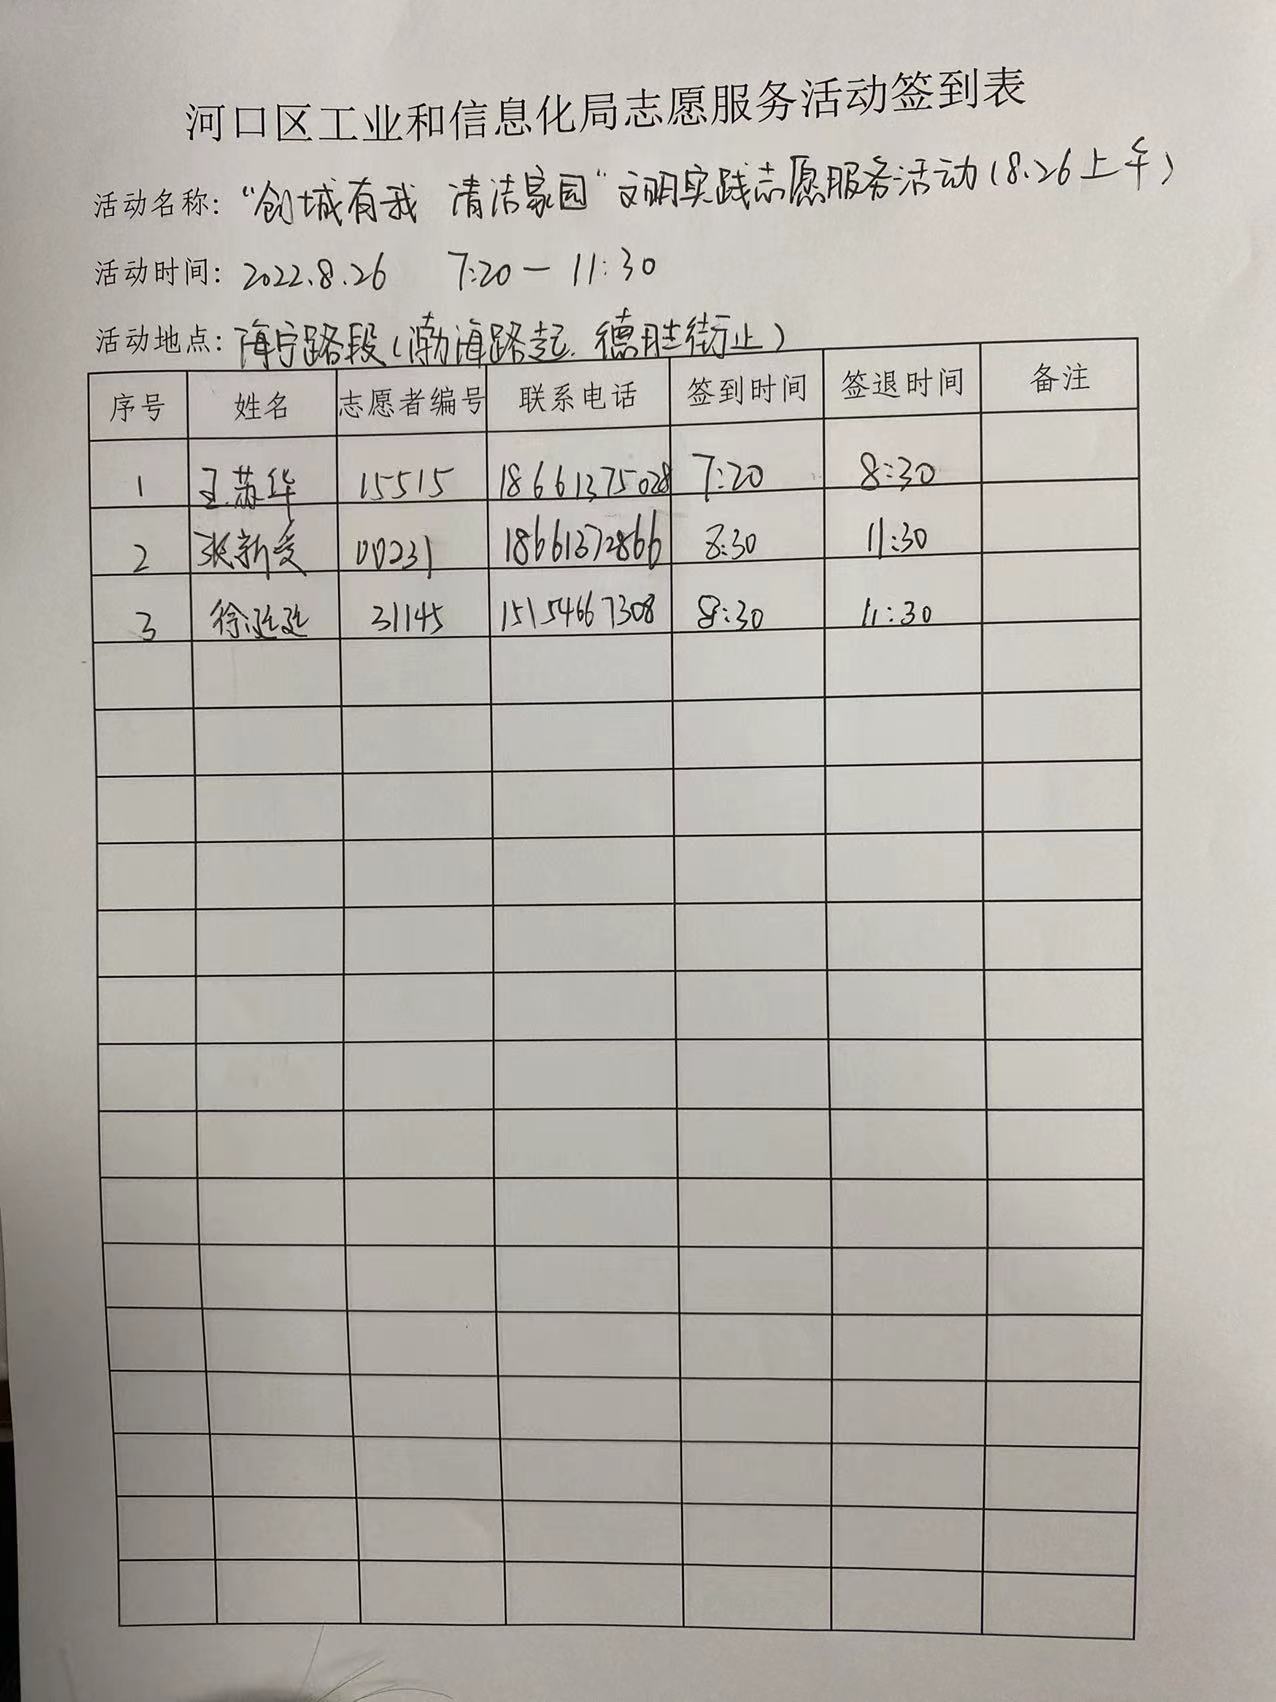 河口区工业和信息化局志愿服务活动签到表
活动名称:“创城有我 清洁家园”文明实践志愿服务活动(8.26上午)
活动时间: 2022.8.26 7:20—11:30
活动地点: 海宁路段(渤海路起.德胜街止)
序号 姓名 志愿者编号 联系电话 签到时间 签退时间 备注
1 王苏华 15515 18661375028 7:20 8:30
2 张新爱 00231 18661372866 8:30 11:30
3 徐延延 31145 15154667308 8:30 11:30